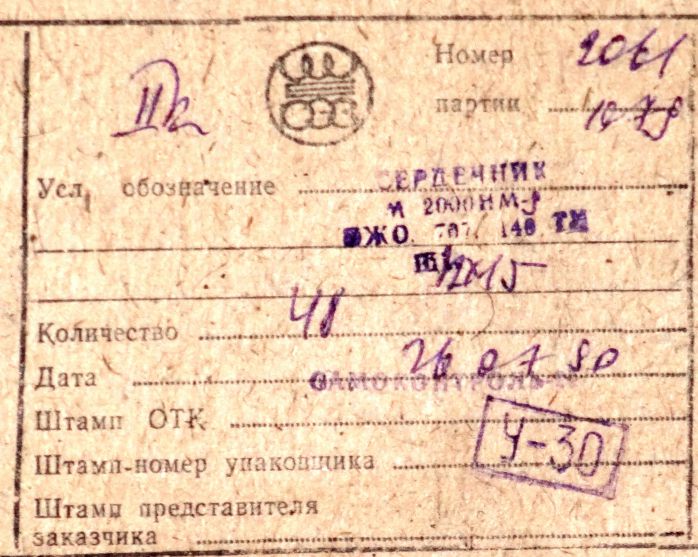 Номер 2061
партии 1079
Усл. обозначение СЕРДЕЧНИК
М 2000НМ-
ОЖО. 707. 140 ТУ
12х15
Количество 48
Дата 26 07 80
САМОКОНТРОЛЬ
Штамп ОТК
Ч-30
Штамп-номер упаковщика
Штамп представителя
заказчика